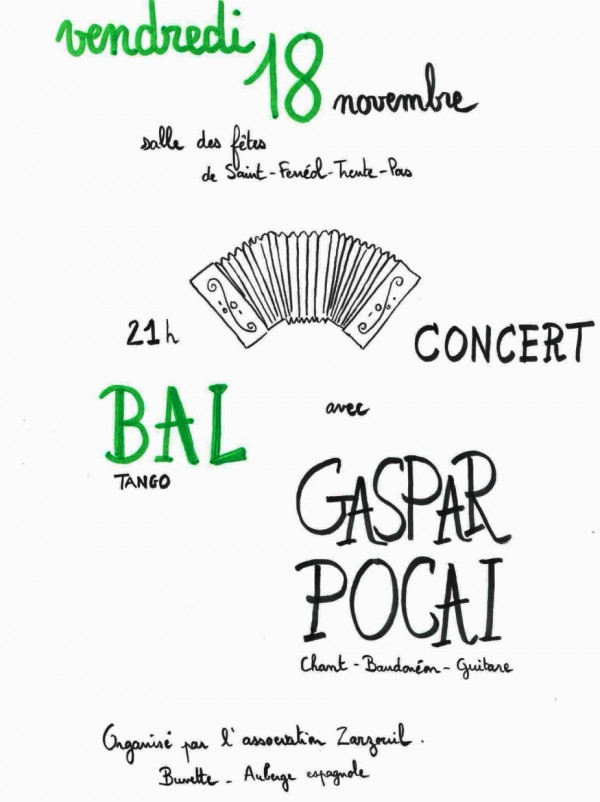 vendredi
18 novembre
salle des fêtes
de Saint-Ferréol-Trente-Pas
21h
CONCERT
BAL
TANGO
avec
GASPAR
POCAI
Chant - Bandonéon - Guitare
Organisé par l'association Zarzouil.
Buvette - Auberge espagnole